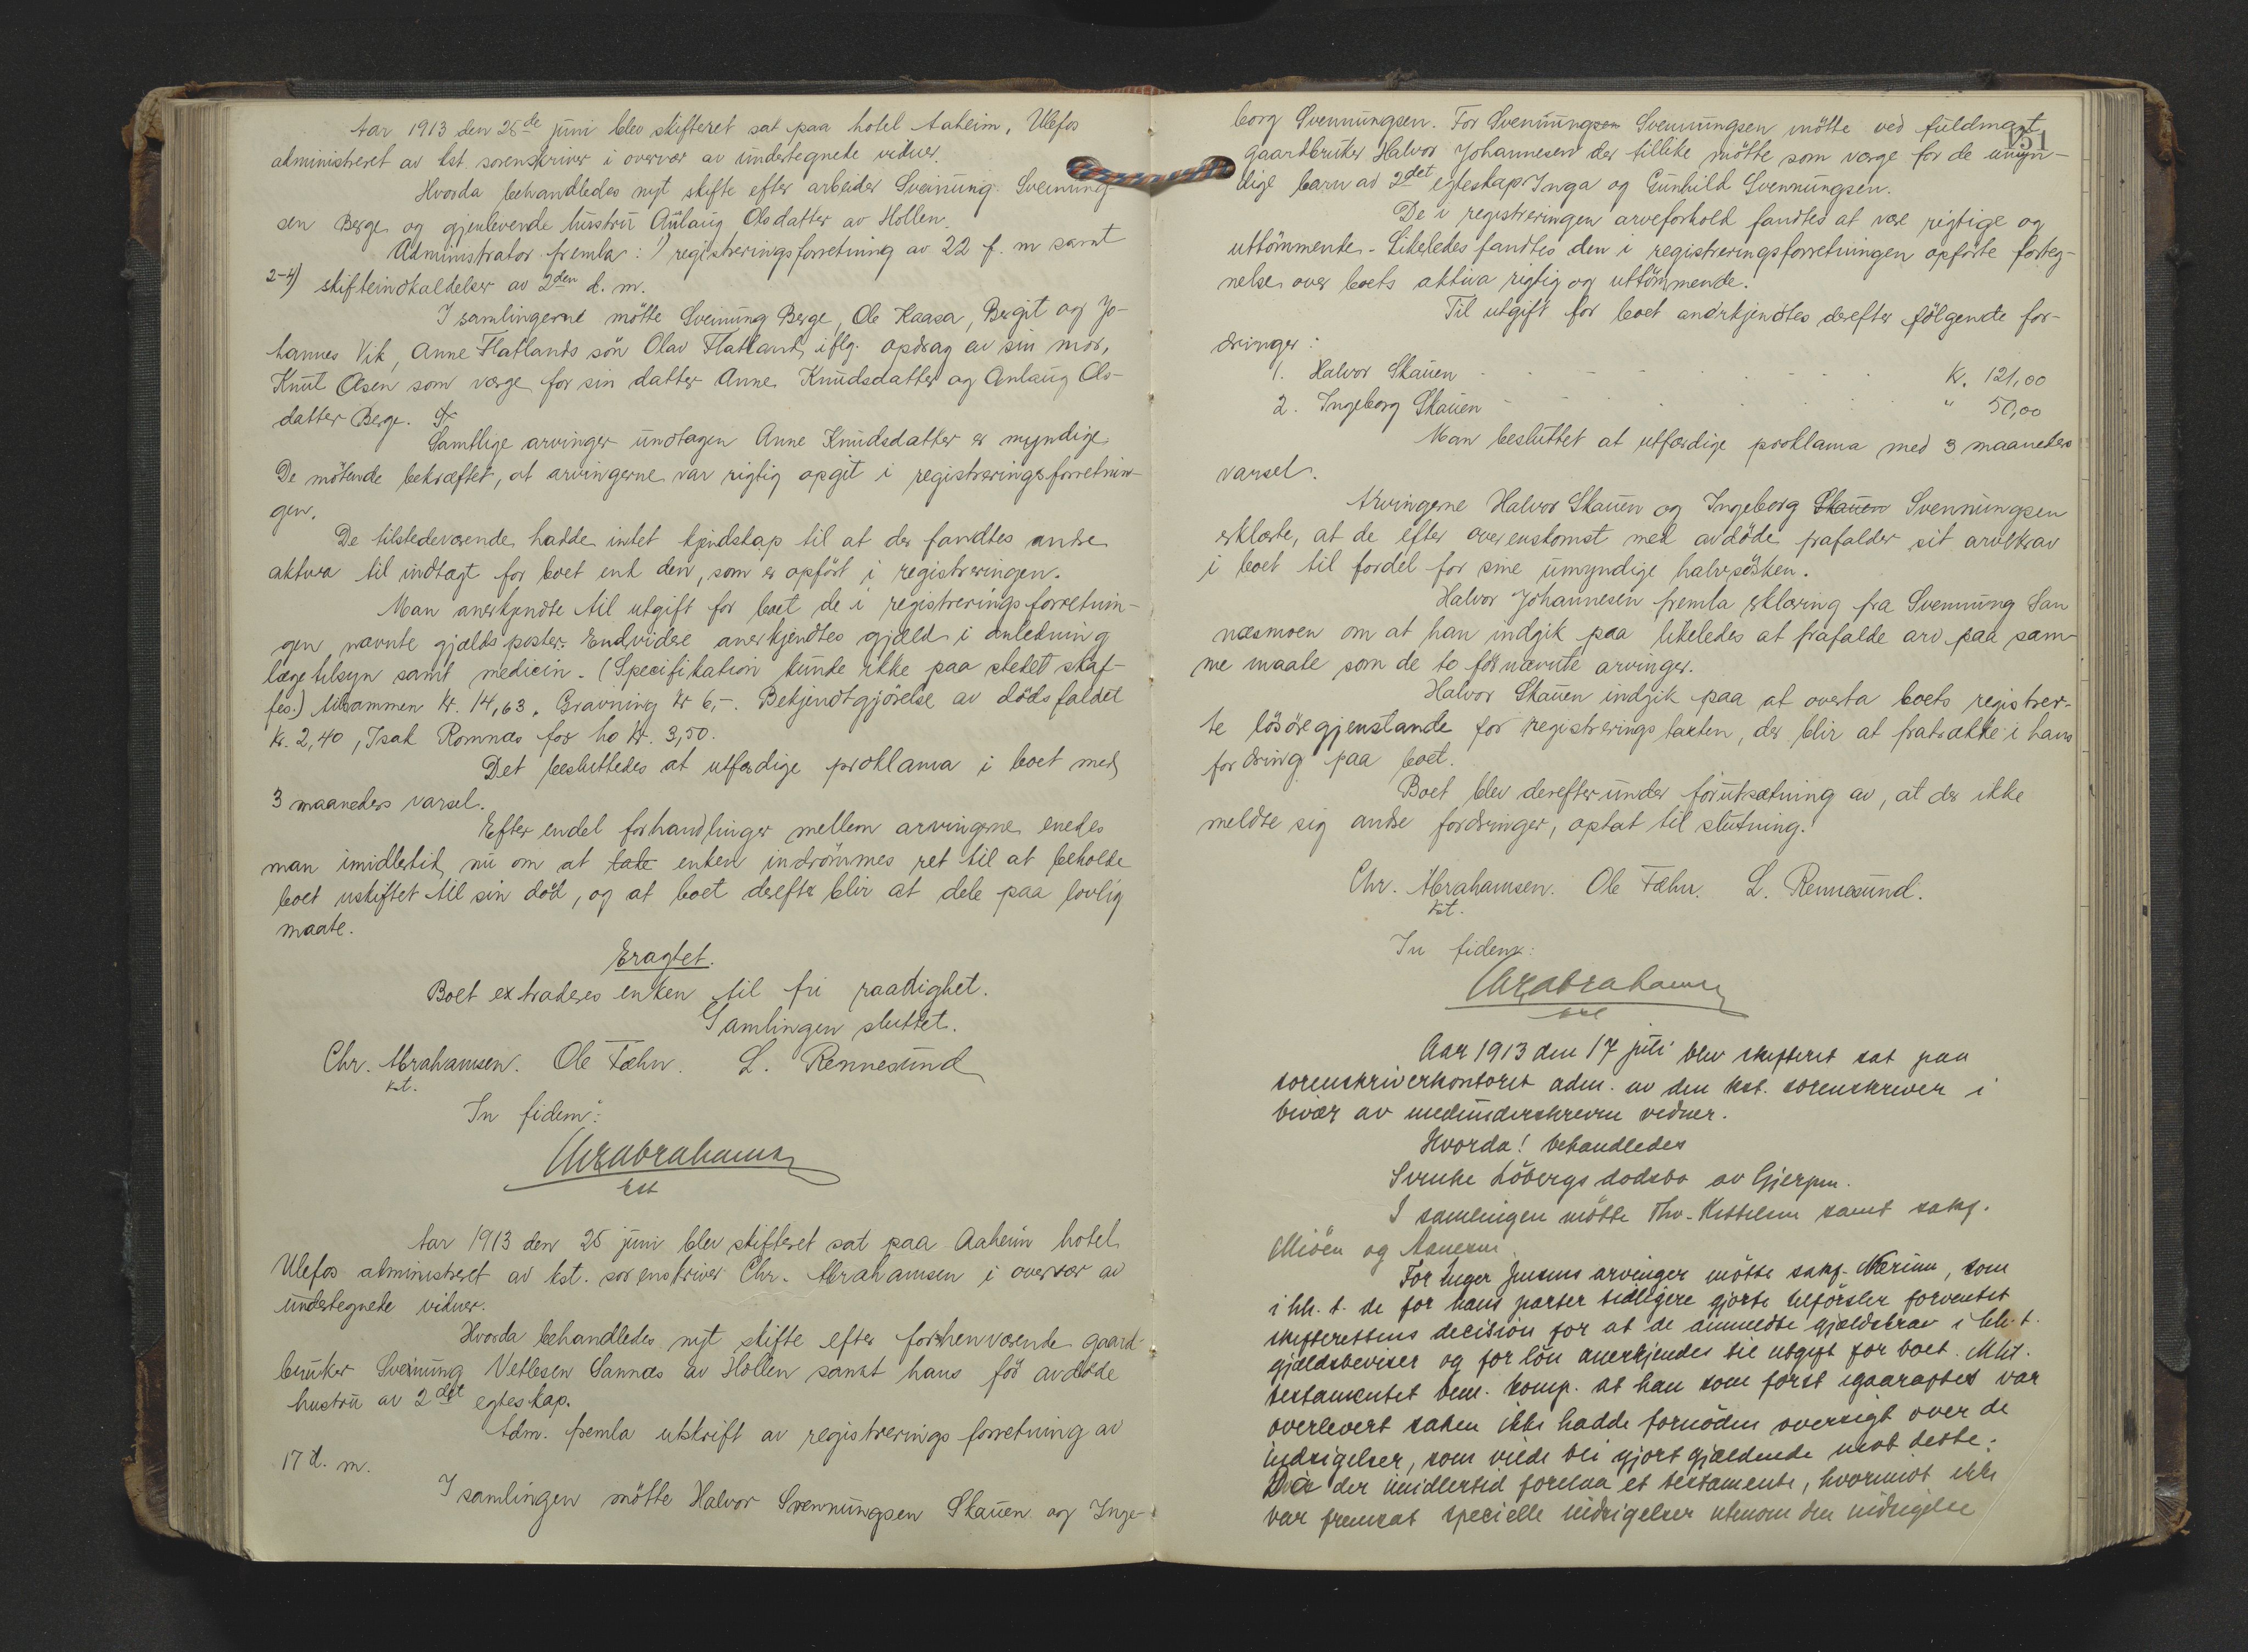 Aar 1913 den 25de juni blev skifteret sat paa hotel Aaheim, Ulefos
administreret av kst. sorenskriver i overvær av undertegnede vidner.
Hvorda behandledes nyt skifte efter arbeider Sveinung Sveinung-
sen Berge og gjenlevende hustru Anlaug Olsdatter av Hollen.
Administrator fremla: 1) registreringsforretning av 22 f. m samt
2-4) skifteindkaldelser av 2den d. m.
I samlingerne mötte Sveinung Berge, Ole Kaasa, Bergit og Jo-
hannes Vik, Anne Flatlands sön Olav Flatland, iflg. opdrag av sin mor,
Knut Olsen som værge for sin datter Anne Knudsdatter og Anlaug Ols-
datter Berge.
Samtlige arvinger undtagen Anne Knudsdatter er myndige.
De mötende bekræftet, at arvingerne var rigtig opgit i registreringsforretnin-
gen.
De tilstedeværende hadde intet kjendskap til at der fandtes andre
aktiva til indtægt for boet end den, som er opfört i registreringen.
Man anerkjendte til utgift for boet de i registreringsforretnin-
gen nævnte gjældsposter. Endvidere anerkjendtes gjæld i anledning
lægetilsyn samt medicin. (Specifikation kunde ikke paa stedet skaf-
fes.) tilsammen kr. 14,63. Gravning kr 6,-. Bekjendtgjörelse av dödsfaldet
kr. 2,40, Isak Romnæs for ho kr. 3,50.
Det besluttedes at utfærdige proklama i boet med
3 maaneders varsel.
Efter endel forhandlinger mellem arvingerne enedes
man imidlertid nu om at lade enken indrömmes ret til at beholde
boet uskiftet til sin död, og at boet derefter blir at dele paa lovlig
maate.
Eragtet.
Boet extraderes enken til fri raadighet.
Samlingen sluttet.
Chr. Abrahamsen. Ole Fæhn. L. Rennesund
kst.
In fidem:
Chr Abrahamsen
kst
Aar 1913 den 25 juni blev skifteret sat paa Aaheim hotel
Ulefos administreret av kst. sorenskriver Chr. Abrahamsen i overvær av
undertegnede vidner.
Hvorda behandledes nyt skifte efter forhenværende gaard-
bruker Sveinung Vetlesen Sannæs av Hollen samt hans för avdöde
hustru av 2det egteskap.
Adm. fremla utskrift av registreringsforretning av
17 d. m.
I samlingen mötte Halvor Svennungsen Skauen og Inge-
151
borg Svennungsen. For Svennungsen Svennungsen mötte ved fuldmagt
gaardbruker Halvor Johannesen der tillike mötte som værge for de umyn-
dige barn av 2det egteskap Inga og Gunhild Svennungsen.
De i registreringen arveforhold fandtes at være rigtige og
uttömmende. Likeledes fandtes den i registreringsforretningen opförte forteg-
nelse over boets aktiva rigtig og uttömmende.
Til utgift for boet anerkjendtes derefter fölgende for-
dringer:
1. Halvor Skauen kr. 121,00
2. Ingeborg Skauen " 50,00
Man besluttet at utfærdige proklama med 3 maaneders
varsel.
Arvingerne Halvor Skauen og Ingeborg Skauen Svennungsen
erklærte, at de efter overenskomst med avdöde frafalder sit arvekrav
i boet til fordel for sine umyndige halvsösken.
Halvor Johannesen fremla erklæring fra Svennung San
næsmoen om at han indgik paa likeledes at frafalde arv paa sam-
me maate som de to förnævnte arvinger.
Halvor Skauen indgik paa at overta boets registrer-
te lösöregjenstande for registreringstaksten, der blir at fratrække i hans
fordring paa boet.
Boet blev derefter under forutsætning av, at der ikke
meldte sig andre fordringer, optat til slutning.
Chr. Abrahamsen. Ole Fæhn. L. Rennesund.
kst.
In fidem:
Chr Abrahamsen
kst
Aar 1913 den 17 juli blev skifteret sat paa
sorenskriverkontoret adm. av den kst. sorenskriver i
bivær av medunderskrevne vidner.
Hvorda! behandledes
Svenke Löbergs dodsbo av Gjerpen.
I samlingen mötte Tho. Kittelsen samt sakf.
Miöen og Aanesen.
For Inger Jensens arvinger mötte sakf. Nærium, som
i hh. t. de for hans parter tidligere gjorte tilförsler forventet
skifterettens decision for at de anmeldte gjældskrav i hh. t.
gjældsbeviser og for lön anerkjendes til utgift for boet. Mht.
testamentet bem. komp. at han som först igaaraftes var
overlevert saken ikke hadde fornöden oversigt over de
indsigelser, som vilde bli gjort gjældende mot dette.
Da der imidlertid forelaa et testamente, hvorimot ikke
var fremsat specielle indsigelser utenom den indsigelse